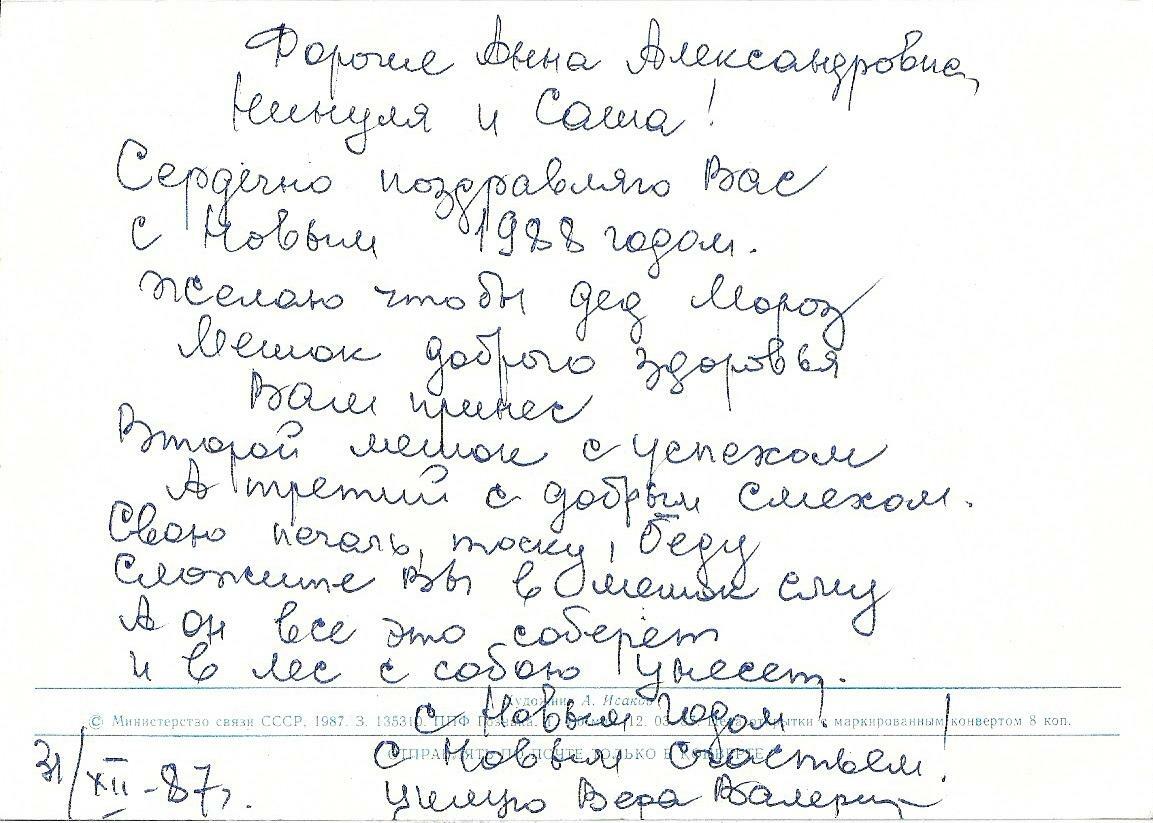 Дорогие Анна Александровна,
Нинуля и Саша!
Сердечно поздравляю Вас
с Новым 1988 годом.
Желаю чтобы дед Мороз
Мешок доброго здоровья
Вам принес
Второй мешок с успехом
А третий с добрым смехом.
Свою печаль, тоску, беду
Сложите Вы в мешок ему
А он все это соберет
и в лес с собою унесет.
Художник А. Исаков
С Новым Годом!
© Министерство связи СССР, 1987. З. 135310. ППФ 12. 03. открытки с маркированным конвертом 8 коп.
С Новым Счастьем!
ОТПРАВЛЯТЬ ПО ПОЧТЕ ТОЛЬКО В КОНВЕРТЕ
31/XII-87г.
Целую Вера